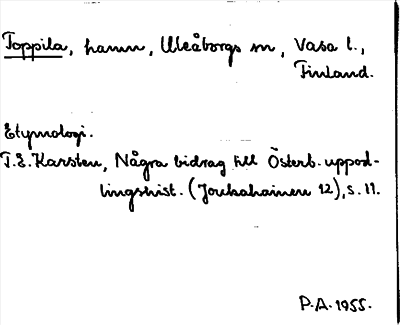 Toppila, hamn, Uleåborgs sn, Vasa l.,
Finland.
Etymologi.
T.E. Karsten, Några bidrag till Österb. uppod-
lingshist. (Joukahainen 12), s. 11.
P.A. 1955.